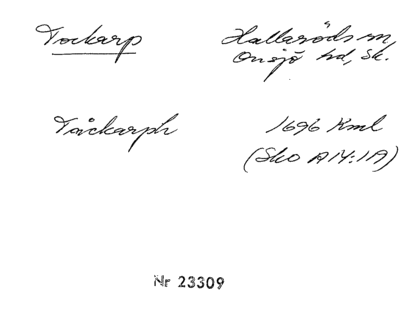 Tockarp Hallaröds sn,
Onsjö hd, Sk.
Tåckarph 1696 Kml
(Sko A14:119)
Nr 23309